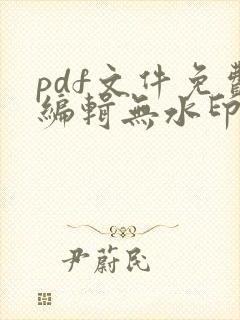 pdf文件免費
編輯無水印
尹蔚民